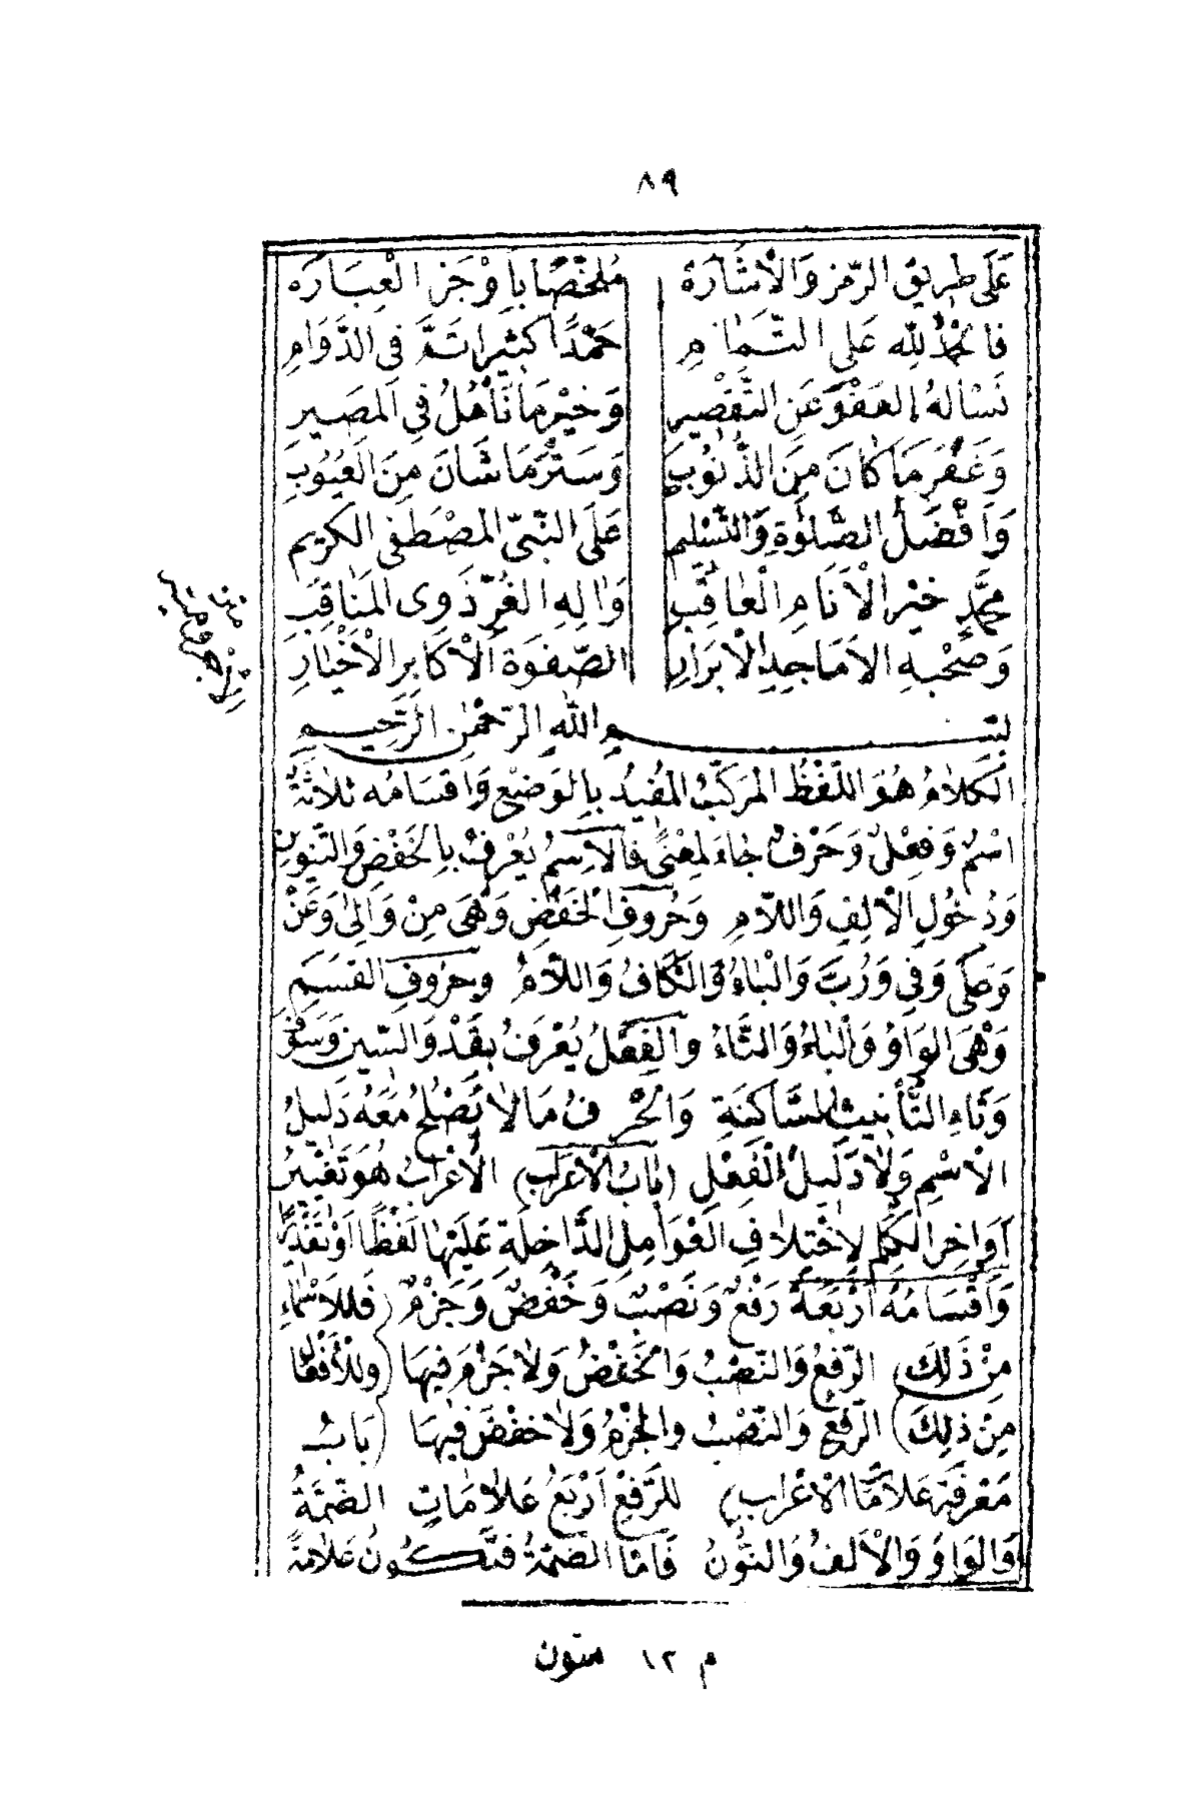 ٨٩
عَلَى طَرِيقِ الرَّمْزِ وَالْاِشَارَهْ مُلَخَّصًا بِاَوْجَزِ الْعِبَارَهْ
فَالْحَمْدُ لِلّٰهِ عَلَى التَّمَامِ حَمْدًا كَثِيرًا تَمَّ فِى الدَّوَامِ
نَسْأَلُهُ الْعَفْوَ عَنِ التَّقْصِيرِ وَخَيْرَ مَا نَأْمُلُ فِى الْمَصِيرِ
وَغَفْرَ مَا كَانَ مِنَ الذُّنُوبِ وَسَتْرَ مَا شَانَ مِنَ الْعُيُوبِ
وَاَفْضَلُ الصَّلٰوةِ وَالتَّسْلِيمِ عَلَى النَّبِىِّ الْمُصْطَفَى الْكَرِيمِ
مُحَمَّدٍ خَيْرِ الْاَنَامِ الْعَاقِبِ وَاٰلِهِ الْغُرِّ ذَوِى الْمَنَاقِبِ
وَصَحْبِهِ الْاَمَاجِدِ الْاَبْرَارِ الصَّفْوَةِ الْاَكَابِرِ الْاَخْيَارِ
متن
الاجروميه
بِسْمِ اللّٰهِ الرَّحْمٰنِ الرَّحِيمِ
الْكَلَامُ هُوَ اللَّفْظُ الْمُرَكَّبُ الْمُفِيدُ بِالْوَضْعِ وَاَقْسَامُهُ ثَلَاثَةٌ
اِسْمٌ وَفِعْلٌ وَحَرْفٌ جَاءَ لِمَعْنًى فَالْاِسْمُ يُعْرَفُ بِالْخَفْضِ وَالتَّنْوِينِ
وَدُخُولِ الْاَلِفِ وَاللَّامِ وَحُرُوفِ الْخَفْضِ وَهْىَ مِنْ وَاِلَى وَعَنْ
وَعَلَى وَفِى وَرُبَّ وَالْبَاءُ وَالْكَافُ وَاللَّامُ وَحُرُوفِ الْقَسَمِ
وَهْىَ الْوَاوُ وَالْبَاءُ وَالتَّاءُ وَالْفِعْلُ يُعْرَفُ بِقَدْ وَالسِّينِ وَسَوْفَ
وَتَاءِ التَّأْنِيثِ السَّاكِنَةِ وَالْحَرْفُ مَا لَا يَصْلُحُ مَعَهُ دَلِيلُ
الْاِسْمِ وَلَا دَلِيلُ الْفِعْلِ (بَابُ الْاِعْرَابِ) الْاِعْرَابُ هُوَ تَغْيِيرُ
اَوَاخِرِ الْكَلِمِ لِاخْتِلَافِ الْعَوَامِلِ الدَّاخِلَةِ عَلَيْهَا لَفْظًا اَوْ تَقْدِيرًا
وَاَقْسَامُهُ اَرْبَعَةٌ رَفْعٌ وَنَصْبٌ وَخَفْضٌ وَجَزْمٌ (فَلِلْاَسْمَاءِ
مِنْ ذَلِكَ) الرَّفْعُ وَالنَّصْبُ وَالْخَفْضُ وَلَا جَزْمَ فِيهَا (وَلِلْاَفْعَالِ
مِنْ ذٰلِكَ) الرَّفْعُ وَالنَّصْبُ وَالْجَزْمُ وَلَا خَفْضَ فِيهَا (بَابُ
مَعْرِفَةِ عَلَامَاتِ الْاِعْرَابِ) لِلرَّفْعِ اَرْبَعُ عَلَامَاتٍ الضَّمَّةُ
وَالْوَاوُ وَالْاَلِفُ وَالنُّونُ فَاَمَّا الضَّمَّةُ فَتَكُونُ عَلَامَةً
م ١٢ متون